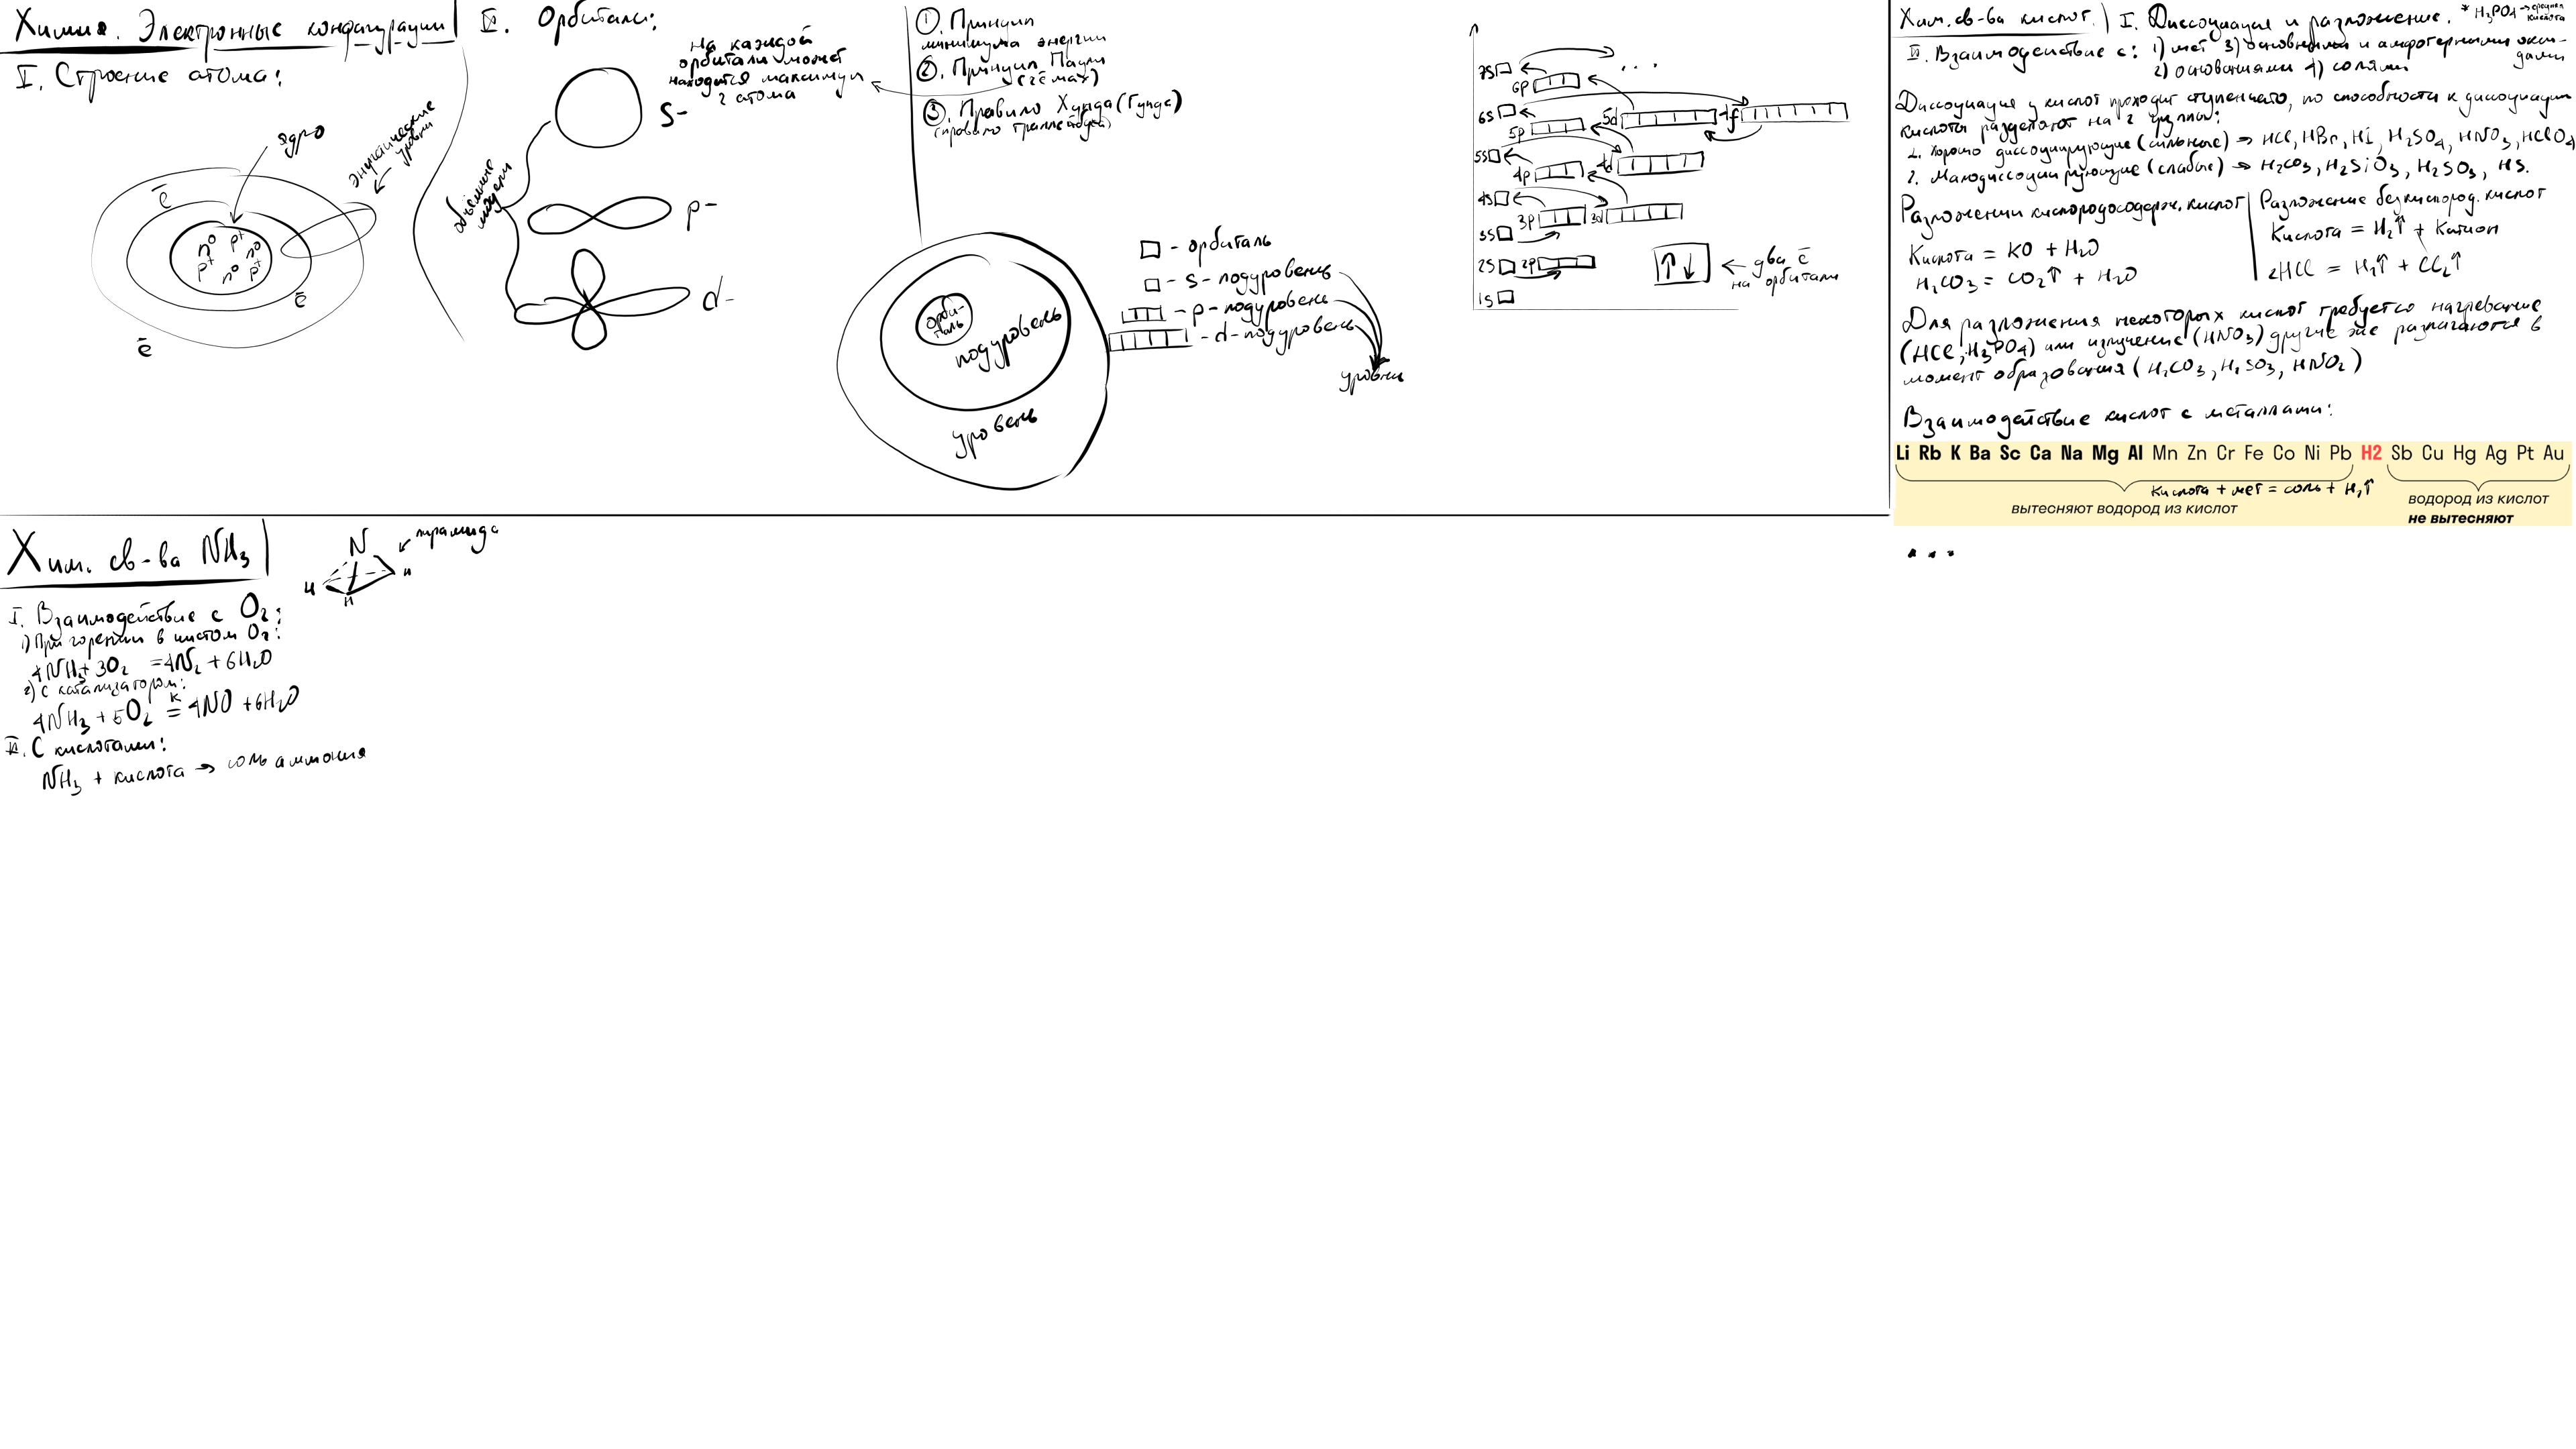 Химия. Электронные конфигурации
I. Строение атома:
ядро
энергитические
уровни
ē
n⁰ p⁺ n⁰
p⁺ n⁰ p⁺
ē
ē
II. Орбитали:
На каждой
орбитали может
находится максимум
2 атома
S-
p-
d-
объёмные
модели
① Принцип
минимума энергии
② Принцип Паули
(2ē max)
③ Правило Хунда (Гунда)
(правило троллейбуса)
орби-
таль
подуровень
уровень
- орбиталь
- s - подуровень
- p - подуровень
- d - подуровень
уровни
7S
6p
...
6S
5p
5d
4f
5S
4p
4d
4S
3p
3d
3S
2S
2p
1S
↑↓
← два ē
на орбитали
Хим. св-ва кислот.
I. Диссоциация и разложение.
* H₃PO₄ → средняя
кислота
II. Взаимодействие с: 1) мет 3) основными и амфотерными окси-
дами
2) основаниями 4) солями
Диссоциация у кислот проходит ступенчато, по способности к диссоциации
кислоты разделяют на 2 группы:
1. Хорошо диссоциирующие (сильные) → HCl, HBr, HI, H₂SO₄, HNO₃, HClO₄
2. Малодиссоциирующие (слабые) → H₂CO₃, H₂SiO₃, H₂SO₃, HS.
Разложении кислородосодерж. кислот
Кислота = КО + H₂O
H₂CO₃ = CO₂↑ + H₂O
Разложение безкислород. кислот
Кислота = H₂↑ + Катион
2HCl = H₂↑ + Cl₂↑
Для разложения некоторых кислот требуется нагревание
(HCl, H₃PO₄) или излучение (HNO₃) другие же разлагаются в
момент образования (H₂CO₃, H₂SO₃, HNO₂)
Взаимодействие кислот с металлами:
Li Rb K Ba Sc Ca Na Mg Al Mn Zn Cr Fe Co Ni Pb H2 Sb Cu Hg Ag Pt Au
Кислота + мет = соль + H₂↑
вытесняют водород из кислот
водород из кислот
не вытесняют
...
Хим. св-ва NH₃
N
H
H
H
пирамида
I. Взаимодействие с O₂:
1) При горении в чистом O₂:
4NH₃ + 3O₂ = 4N₂ + 6H₂O
2) С катализатором:
к
4NH₃ + 5O₂ = 4NO + 6H₂O
II. С кислотами:
NH₃ + кислота → соль аммония